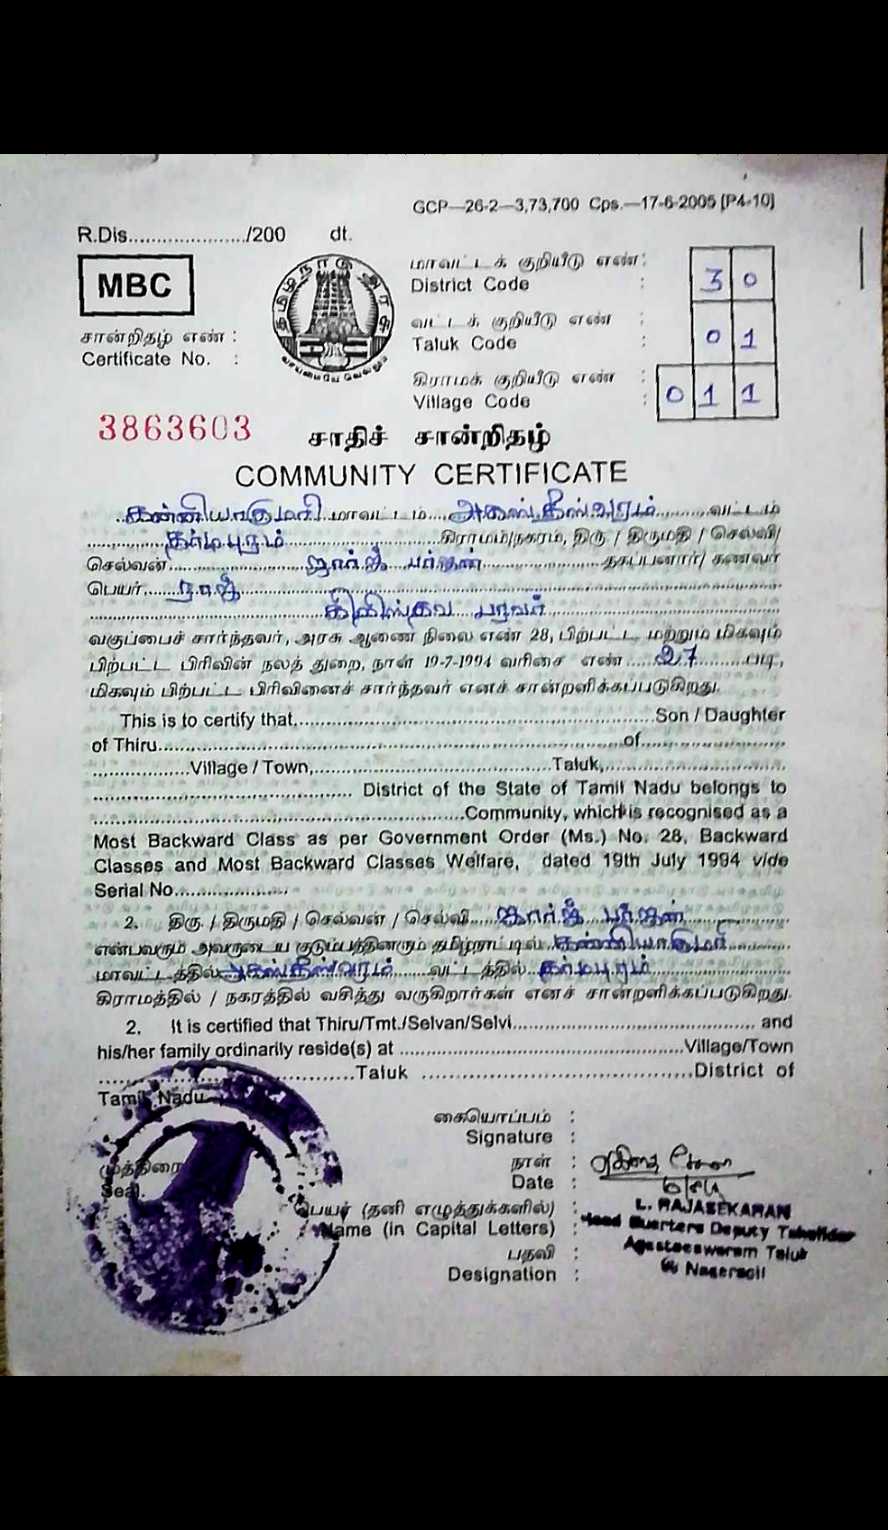 GCP—26-2—3,73,700 Cps.—17-6-2005 [P4-10]
R.Dis...................../200 dt.
MBC
தமிழ்நாடு அரசு
வாய்மையே வெல்லும்
மாவட்டக் குறியீடு எண் :
District Code : 3 0
வட்டக் குறியீடு எண் :
Taluk Code : 0 1
கிராமக் குறியீடு எண் :
Village Code : 0 1 1
சான்றிதழ் எண் :
Certificate No. :
3863603
சாதிச் சான்றிதழ்
COMMUNITY CERTIFICATE
கன்னியாகுமரி மாவட்டம் அகஸ்தீஸ்வரம் வட்டம்
தர்மபுரம் கிராமம்/நகரம், திரு / திருமதி / செல்வி/
செல்வன் ஜார்ஜ் தகப்பனார்/ கணவர்
பெயர் ராஜ்
கிறிஸ்தவ பரவர்
வகுப்பைச் சார்ந்தவர், அரசு ஆணை நிலை எண் 28, பிற்பட்ட மற்றும் மிகவும்
பிற்பட்ட பிரிவின் நலத் துறை, நாள் 19-7-1994 வரிசை எண் 27 படி,
மிகவும் பிற்பட்ட பிரிவினைச் சார்ந்தவர் எனச் சான்றளிக்கப்படுகிறது.
This is to certify that.................... Son / Daughter
of Thiru....................of....................
....................Village / Town,....................Taluk,....................
.................... District of the State of Tamil Nadu belongs to
....................Community, which is recognised as a
Most Backward Class as per Government Order (Ms.) No. 28, Backward
Classes and Most Backward Classes Welfare, dated 19th July 1994 vide
Serial No....................
2. திரு / திருமதி / செல்வன் / செல்வி ஜார்ஜ்
என்பவரும் அவருடைய குடும்பத்தினரும் தமிழ்நாட்டில் கன்னியாகுமரி
மாவட்டத்தில் அகஸ்தீஸ்வரம் வட்டத்தில் தர்மபுரம்
கிராமத்தில் / நகரத்தில் வசித்து வருகிறார்கள் எனச் சான்றளிக்கப்படுகிறது.
2. It is certified that Thiru/Tmt./Selvan/Selvi.................... and
his/her family ordinarily reside(s) at ....................Village/Town
....................Taluk ....................District of
Tamil Nadu.
கையொப்பம் :
Signature :
முத்திரை
Seal.
நாள் :
Date :
பெயர் (தனி எழுத்துக்களில்) :
Name (in Capital Letters) :
பதவி :
Designation :
L. RAJASEKARAN
Head Quarters Deputy Tahsildar
Agasteeswaram Taluk
Nagercoil